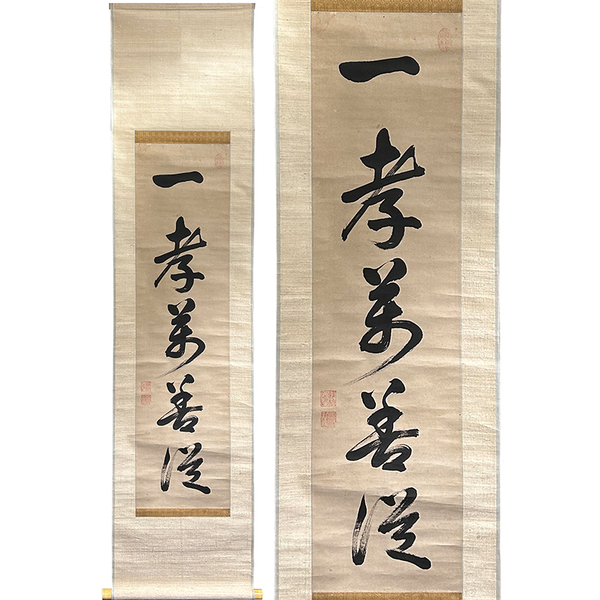 一孝萬善從
一孝萬善從